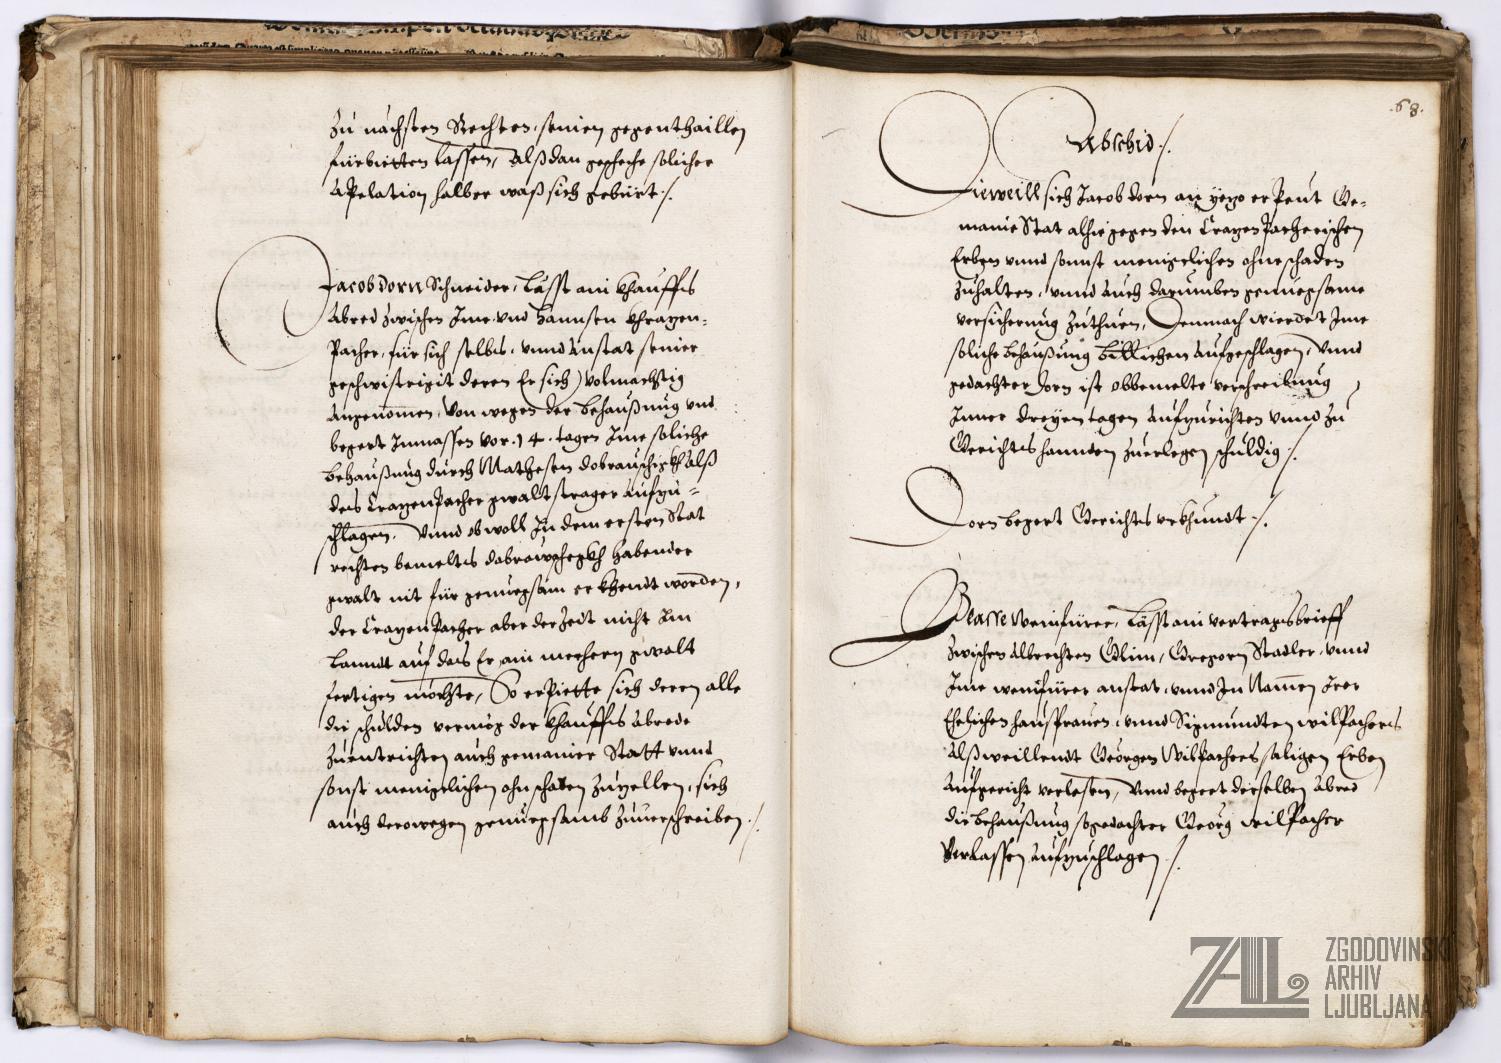 Zu nächsten Rechten, seinen gegenthaillen
fürbietten lassen, Alßdan gescheche solicher
Apelation halber waß sich gebürt ./.
Jacob Dorn Schneider, Lässt ain Khauffs
Abred zwischen Ime vnd Hannsen Khrayen-
Pacher, für sich selbs, vnnd Anstat seiner
geschwistrigit deren Er sich) volmachtig
Angenomen, von wegen der Behaußung vnd
begert Inmassen vor .14. tagen Ime soliche
Behaußung durch Mathesen Dobrauschegkh Alß
des Crayenpacher gwaltstrager Aufzu-
schlagen. Vnnd obwoll In dem ersten Stat
rechten bemeltes Dobrawschegkh habender
gwalt nit für genuegsam erkhendt worden,
der Crayenpacher aber der Zeit nicht Im
Lanndt auf das Er ain merhern gwalt
fertigen möchte, So erPiette sich deren alle
die schulden vermög der Khauffs Abrede
Zuentrichten auch gemainer Statt vnnd
sonst menigelichen ohn schaden Zustellen, sich
auch derowegen genuegsamb Zuuerschreiben ./.
.68.
Abschid ./.
Dieweill sich Jacob Dorn an yezo erPeut Ge-
maine Stat alhie gegen den Crayenpacherischen
Erben vnnd sonnst menigelichen ohne schaden
Zuhalten, vnnd Auch darumben genuegsame
versicherung Zuthuen, Demnach wierdet Ime
soliche Behaußung billichen Aufgeschlagen, Vnnd
gedachter Dorn ist obbemelte verschreibung
Inner dreyen tagen Aufzurichten vnnd Zu
Gerichts hannden Zuerlegen schuldig ./.
Dorn begert Gerichts vrkhundt ./.
Weinfürer, Lässt ain vertragsbrieff
Zwischen Albrechten Glim, Gregorn Stadler, vnnd
Ime weinfürer anstat, vnnd In Namen Irer
Ehelichen hausfrauen, vnnd Sigmundten wilpachers
Alß weillendt Geörgen Wilpachers saligen Erben
Aufgericht verlesen, Vnnd begert derselben Abred
die Behaußung so gedachter Georg wilpacher
Verlassen Aufzuschlagen ./.
ZAL
ZGODOVINSKI
ARHIV
LJUBLJANA